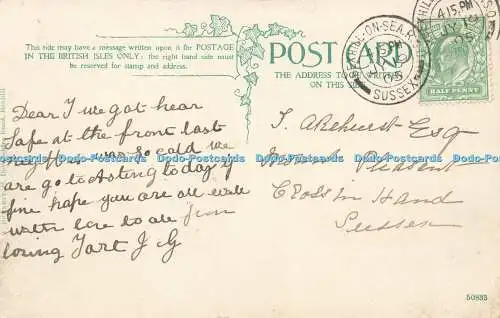 This side may have a message written upon it for POSTAGE
IN THE BRITISH ISLES ONLY: the right hand side must
be reserved for stamp and address.
POST CARD
THE ADDRESS TO BE WRITTEN
ON THIS SIDE
SUSSEX
4 15 PM
JY 19
HALF PENNY
Dear J we got hear
safe at the front last
night was so cold we
are go to Asting today if
fine hope you are all well
with love to all from
loving Tart J G
T. Akehurst Esq
Mount Pleasent
Cross in Hand
Sussex
Dodo-Postcards Dodo-Postcards Dodo-Postcards Dodo-Postcards Dodo-Postcards Dodo-Postcards
50835